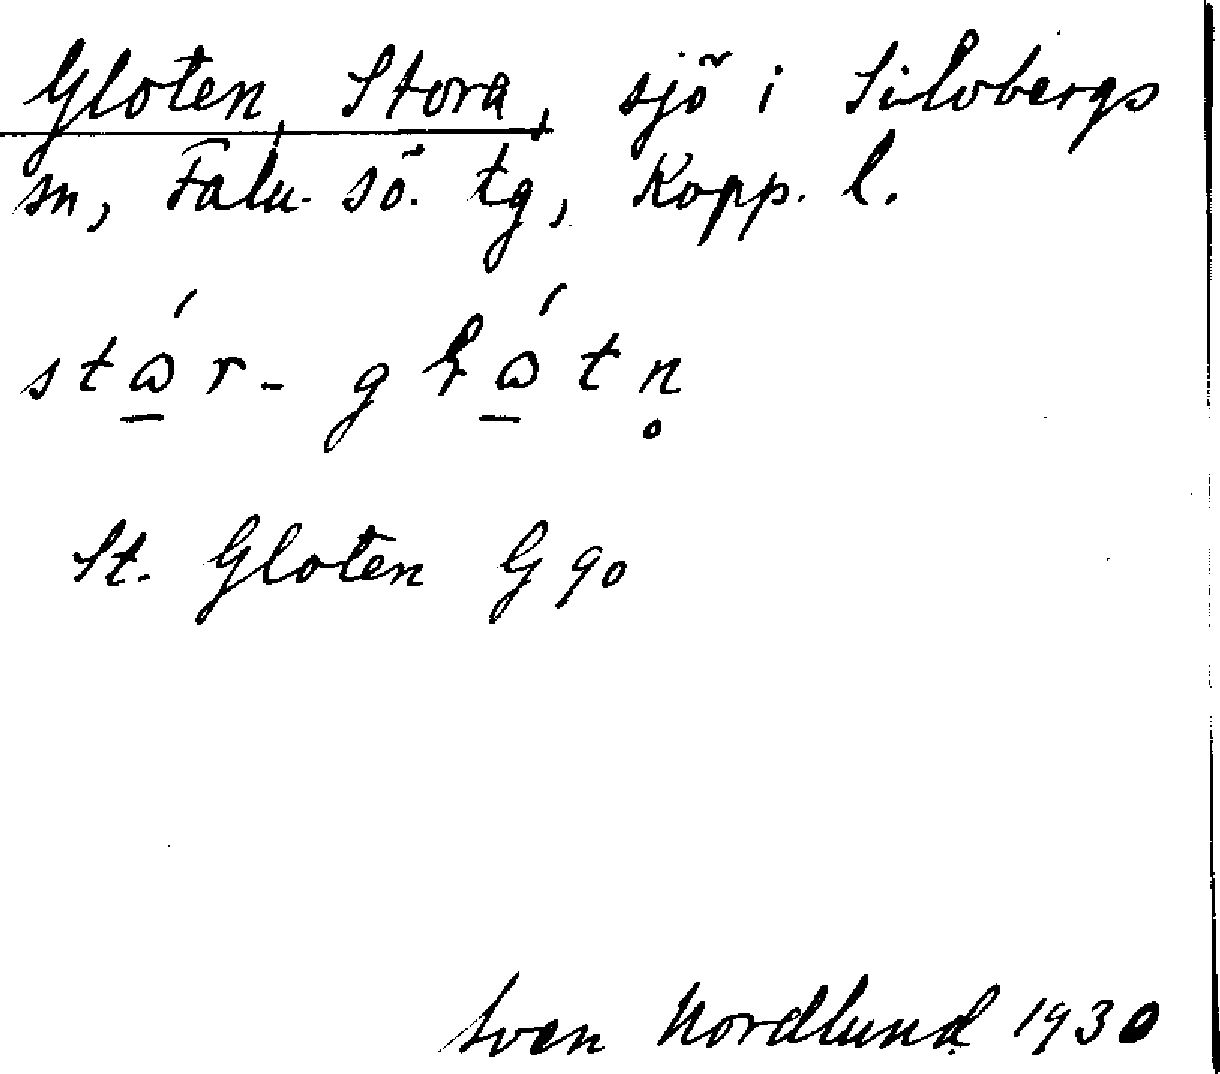 Gloten, Stora, sjö i Silvbergs
sn, Falu. sö. tg, Kopp. l.
stɷ̠́r- gɫɷ̠́tn̥
St. Gloten G 90
Sven Nordlund 1930